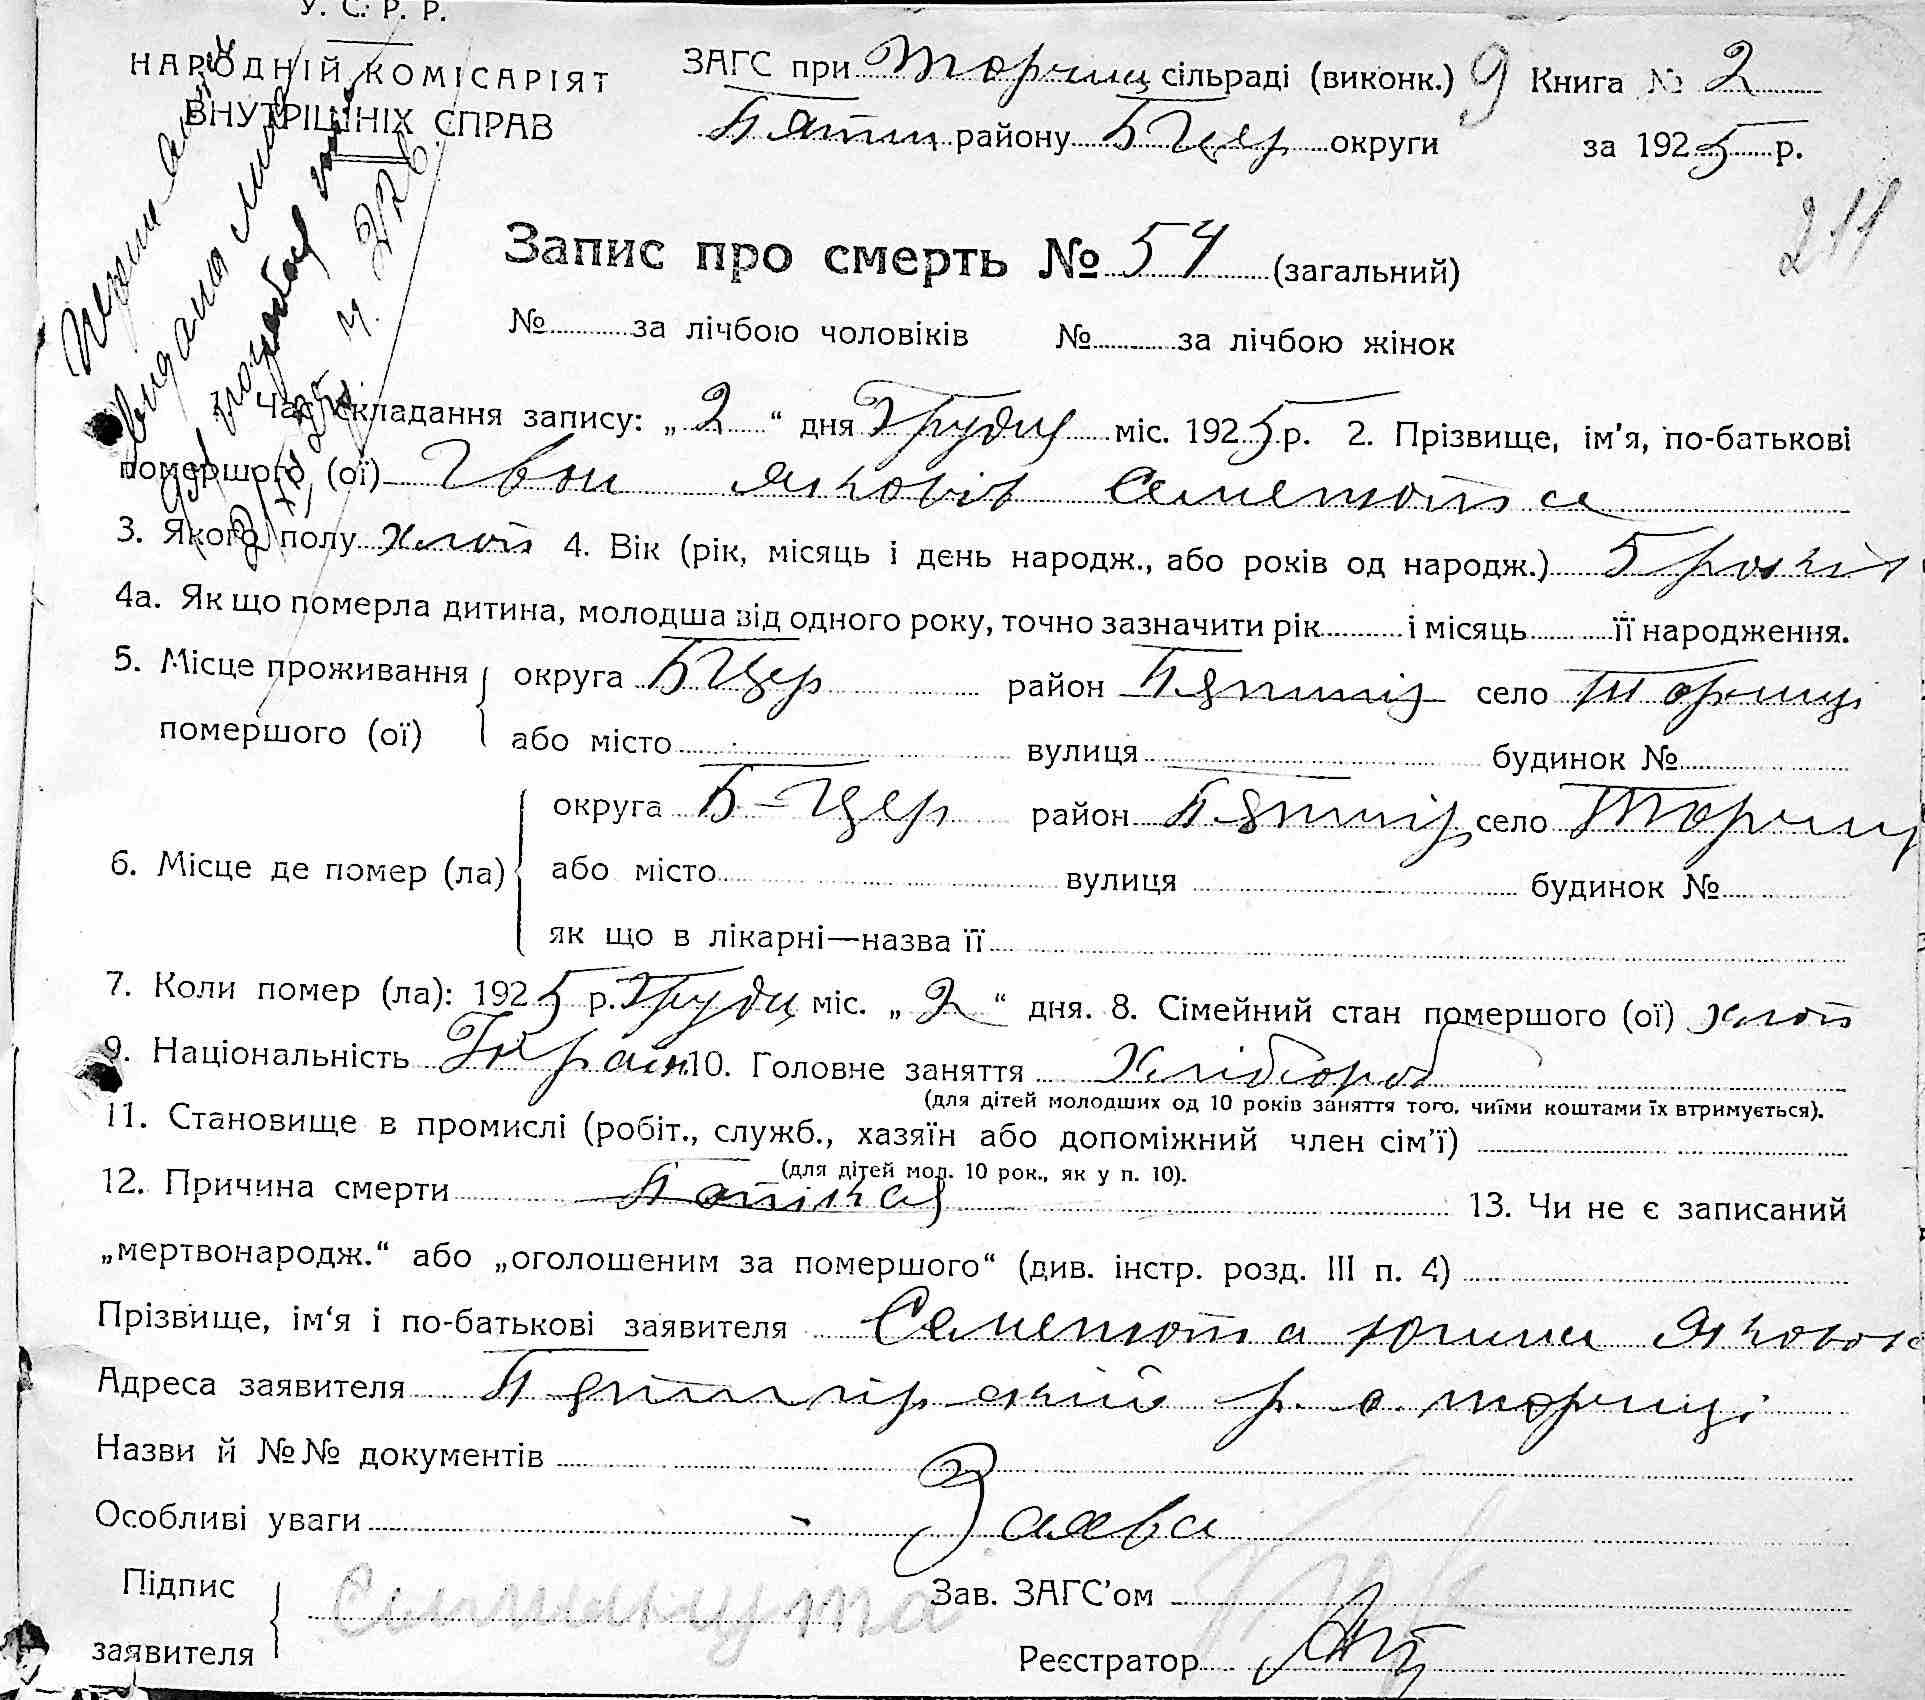 У. С. Р. Р.
НАРОДНІЙ КОМІСАРІЯТ
ВНУТРІШНІХ СПРАВ
ЗАГС при Торчиц сільраді (виконк.) 9 Книга № 2
Пятиг району БЦер округи за 1925 р.
211
Запис про смерть № 54 (загальний)
№ за лічбою чоловіків № за лічбою жінок
видана
1. Час складання запису: „2“ дня Грудня міс. 1925 р. 2. Прізвище, ім'я, по-батькові
помершого (ої) Іван Яковів Семенюта
3. Якого полу хлоп 4. Вік (рік, місяць і день народж., або років од народж.) 5 років
4а. Як що померла дитина, молодша від одного року, точно зазначити рік і місяць її народження.
5. Місце проживання помершого (ої) округа БЦер район Пятигір село Торчиці
або місто вулиця будинок №
6. Місце де помер (ла) округа Б-Цер район Пятигір село Торчиц
або місто вулиця будинок №
як що в лікарні—назва її
7. Коли помер (ла): 1925 р. Грудн міс. „2“ дня. 8. Сімейний стан помершого (ої) хлоп
9. Національність Україн 10. Головне заняття Хлібороб
(для дітей молодших од 10 років заняття того, чиїми коштами їх втримується).
11. Становище в промислі (робіт., служб., хазяїн або допоміжний член сім'ї)
(для дітей мол. 10 рок., як у п. 10).
12. Причина смерти 13. Чи не є записаний
„мертвонародж.“ або „оголошеним за помершого“ (див. інстр. розд. III п. 4)
Прізвище, ім'я і по-батькові заявителя Семенюта
Адреса заявителя Пятигірський р. с. Торчиці
Назви й №№ документів
Особливі уваги Заява
Підпис заявителя Зав. ЗАГС'ом
Реєстратор